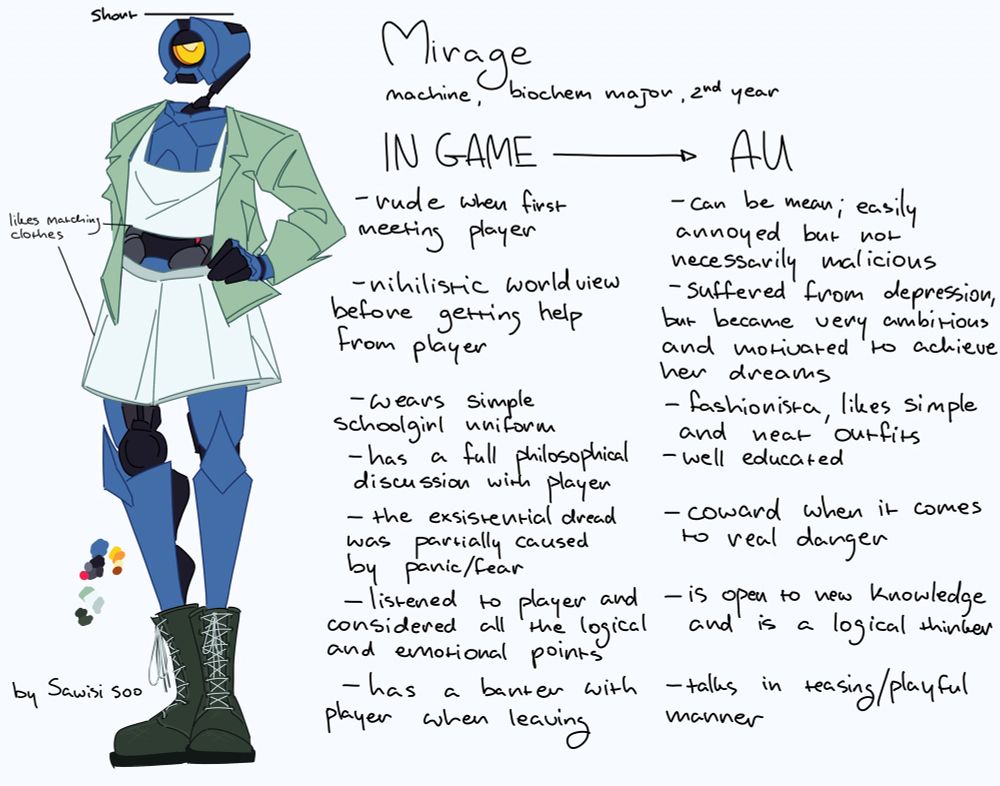 Short
Mirage
machine, biochem major, 2nd year
IN GAME
AU
likes matching
clothes
-rude when first
meeting player
-can be mean; easily
annoyed but not
necessarily malicious
-nihilistic worldview
before getting help
from player
-suffered from depression,
but became very ambitious
and motivated to achieve
her dreams
-wears simple
schoolgirl uniform
-fashionista, likes simple
and neat outfits
-has a full philosophical
discussion with player
-well educated
-the exsistential dread
was partially caused
by panic/fear
-coward when it comes
to real danger
-listened to player and
considered all the logical
and emotional points
-is open to new knowledge
and is a logical thinker
-has a banter with
player when leaving
-talks in teasing/playful
manner
by Sawisi soo